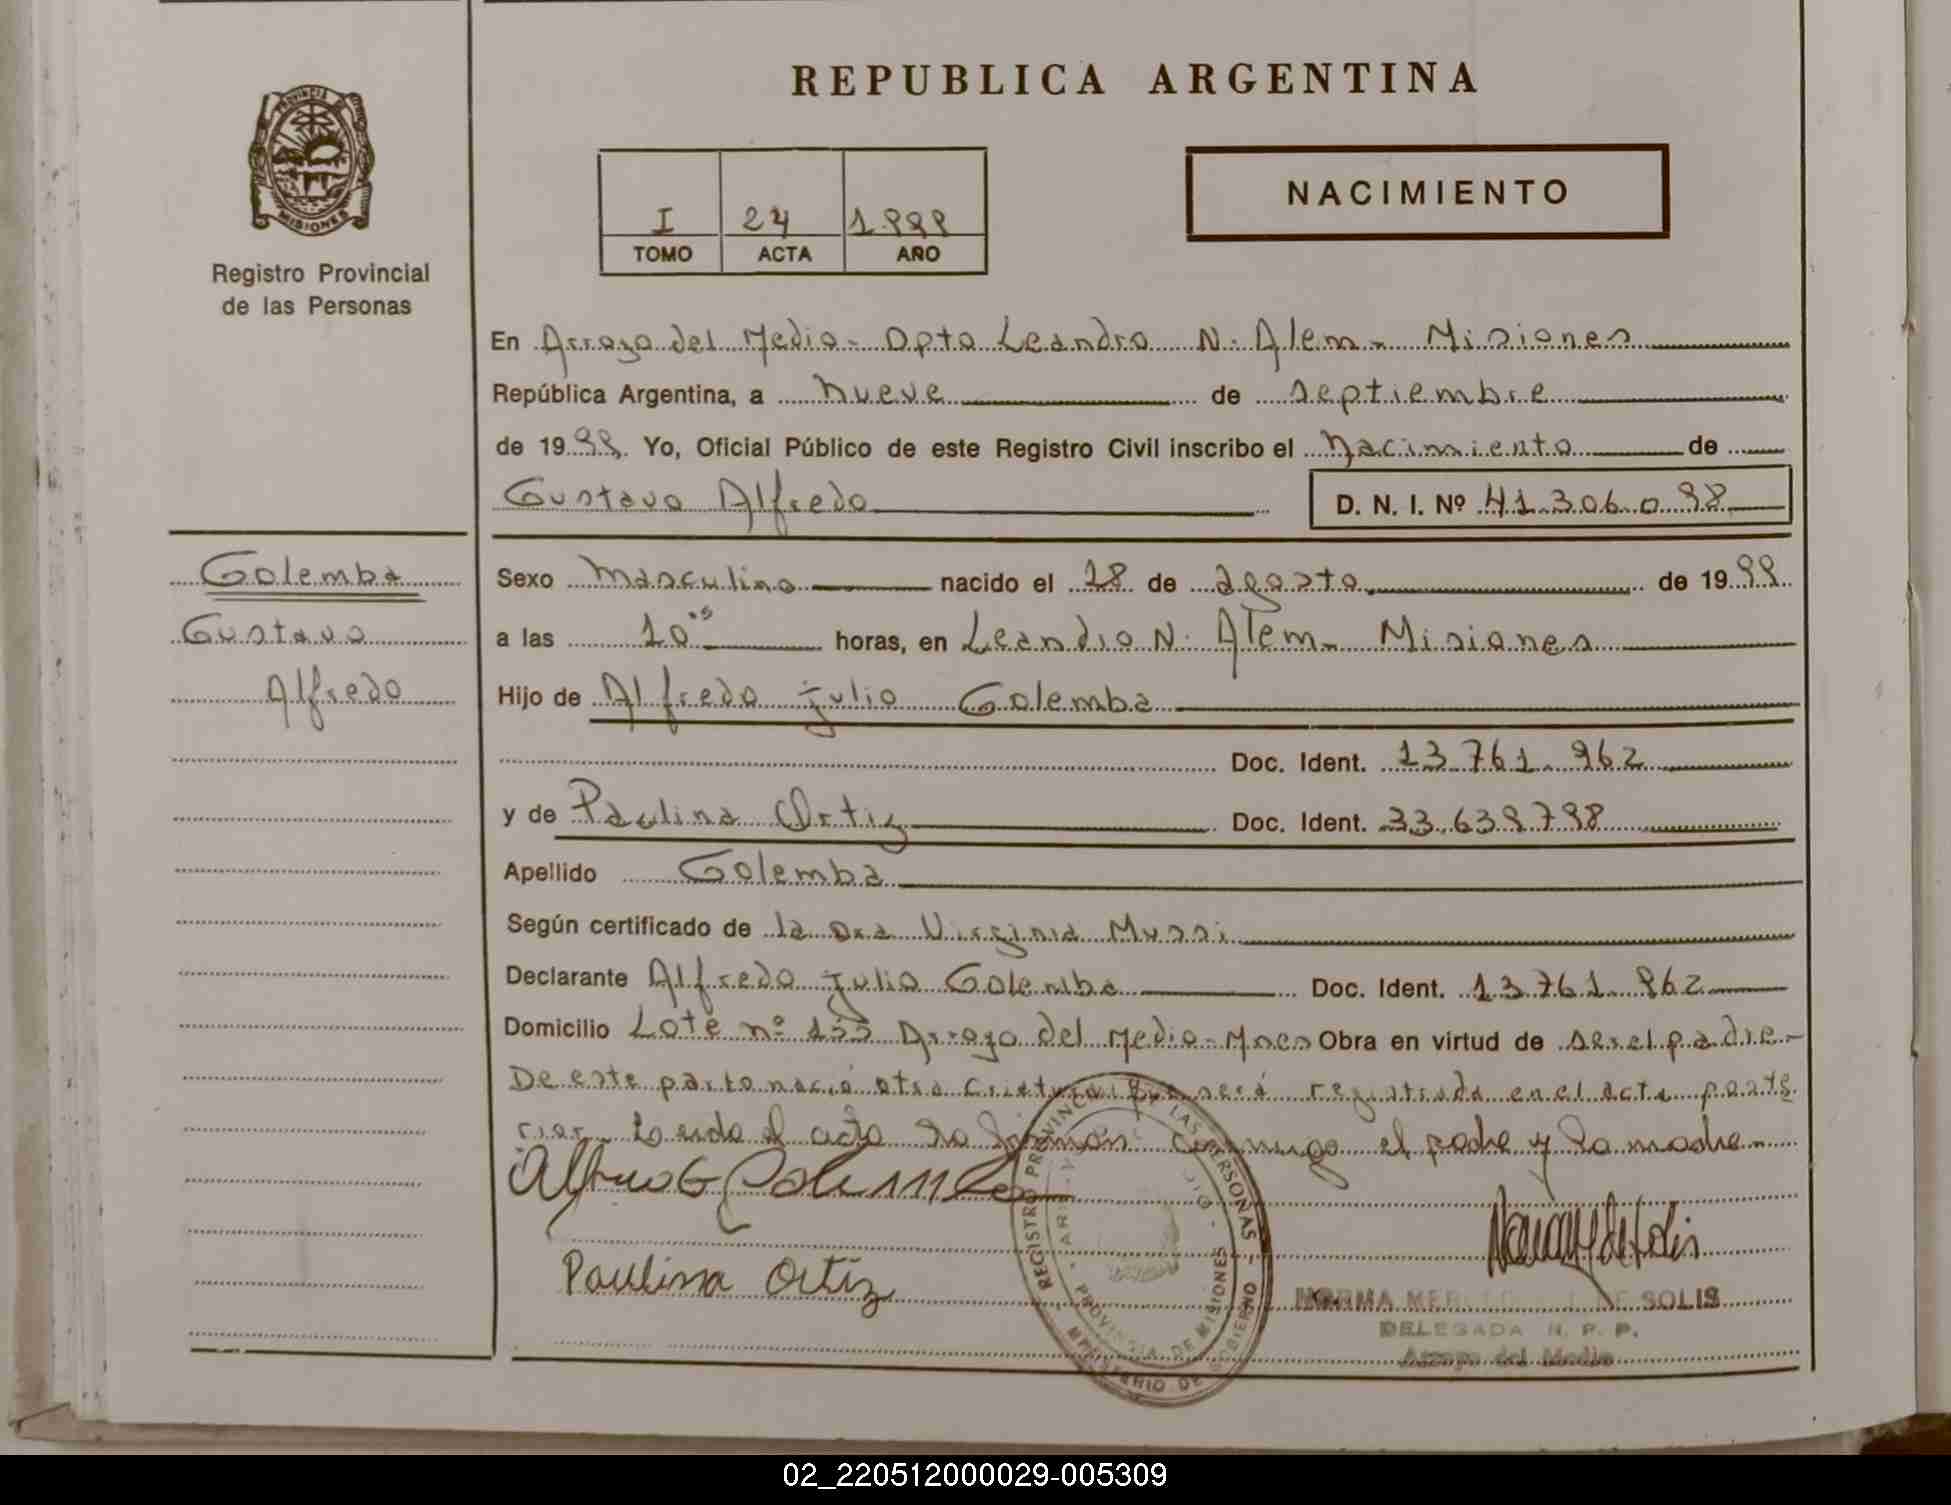 REPUBLICA ARGENTINA
PROVINCIA DE
MISIONES
Registro Provincial
de las Personas
NACIMIENTO
I 24 1.999
TOMO ACTA AÑO
En Arroyo del Medio - Dpto Leandro N. Alem - Misiones
República Argentina, a nueve de septiembre
de 1999. Yo, Oficial Público de este Registro Civil inscribo el Nacimiento de
Gustavo Alfredo D. N. I. Nº 41.306.098
Golemba
Gustavo
Alfredo
Sexo Masculino nacido el 28 de agosto de 1999
a las 10 horas, en Leandro N. Alem - Misiones
Hijo de Alfredo Julio Golemba
Doc. Ident. 13.761.962
y de Paulina Ortiz Doc. Ident. 33.639.798
Apellido Golemba
Según certificado de la Dra Virginia Mussi
Declarante Alfredo Julio Golemba Doc. Ident. 13.761.962
Domicilio Lote nº 155 Arroyo del Medio - Mnes Obra en virtud de ser el padre -
De este parto nació otra criatura que será registrada en el acta poste
rior. Leída el acta la firman conmigo el padre y la madre
Paulina Ortiz
REGISTRO PROVINCIAL DE LAS PERSONAS
PROVINCIA DE MISIONES
MINISTERIO DE GOBIERNO
NORMA DE SOLIS
DELEGADA R. P. P.
Arroyo del Medio
02_220512000029-005309